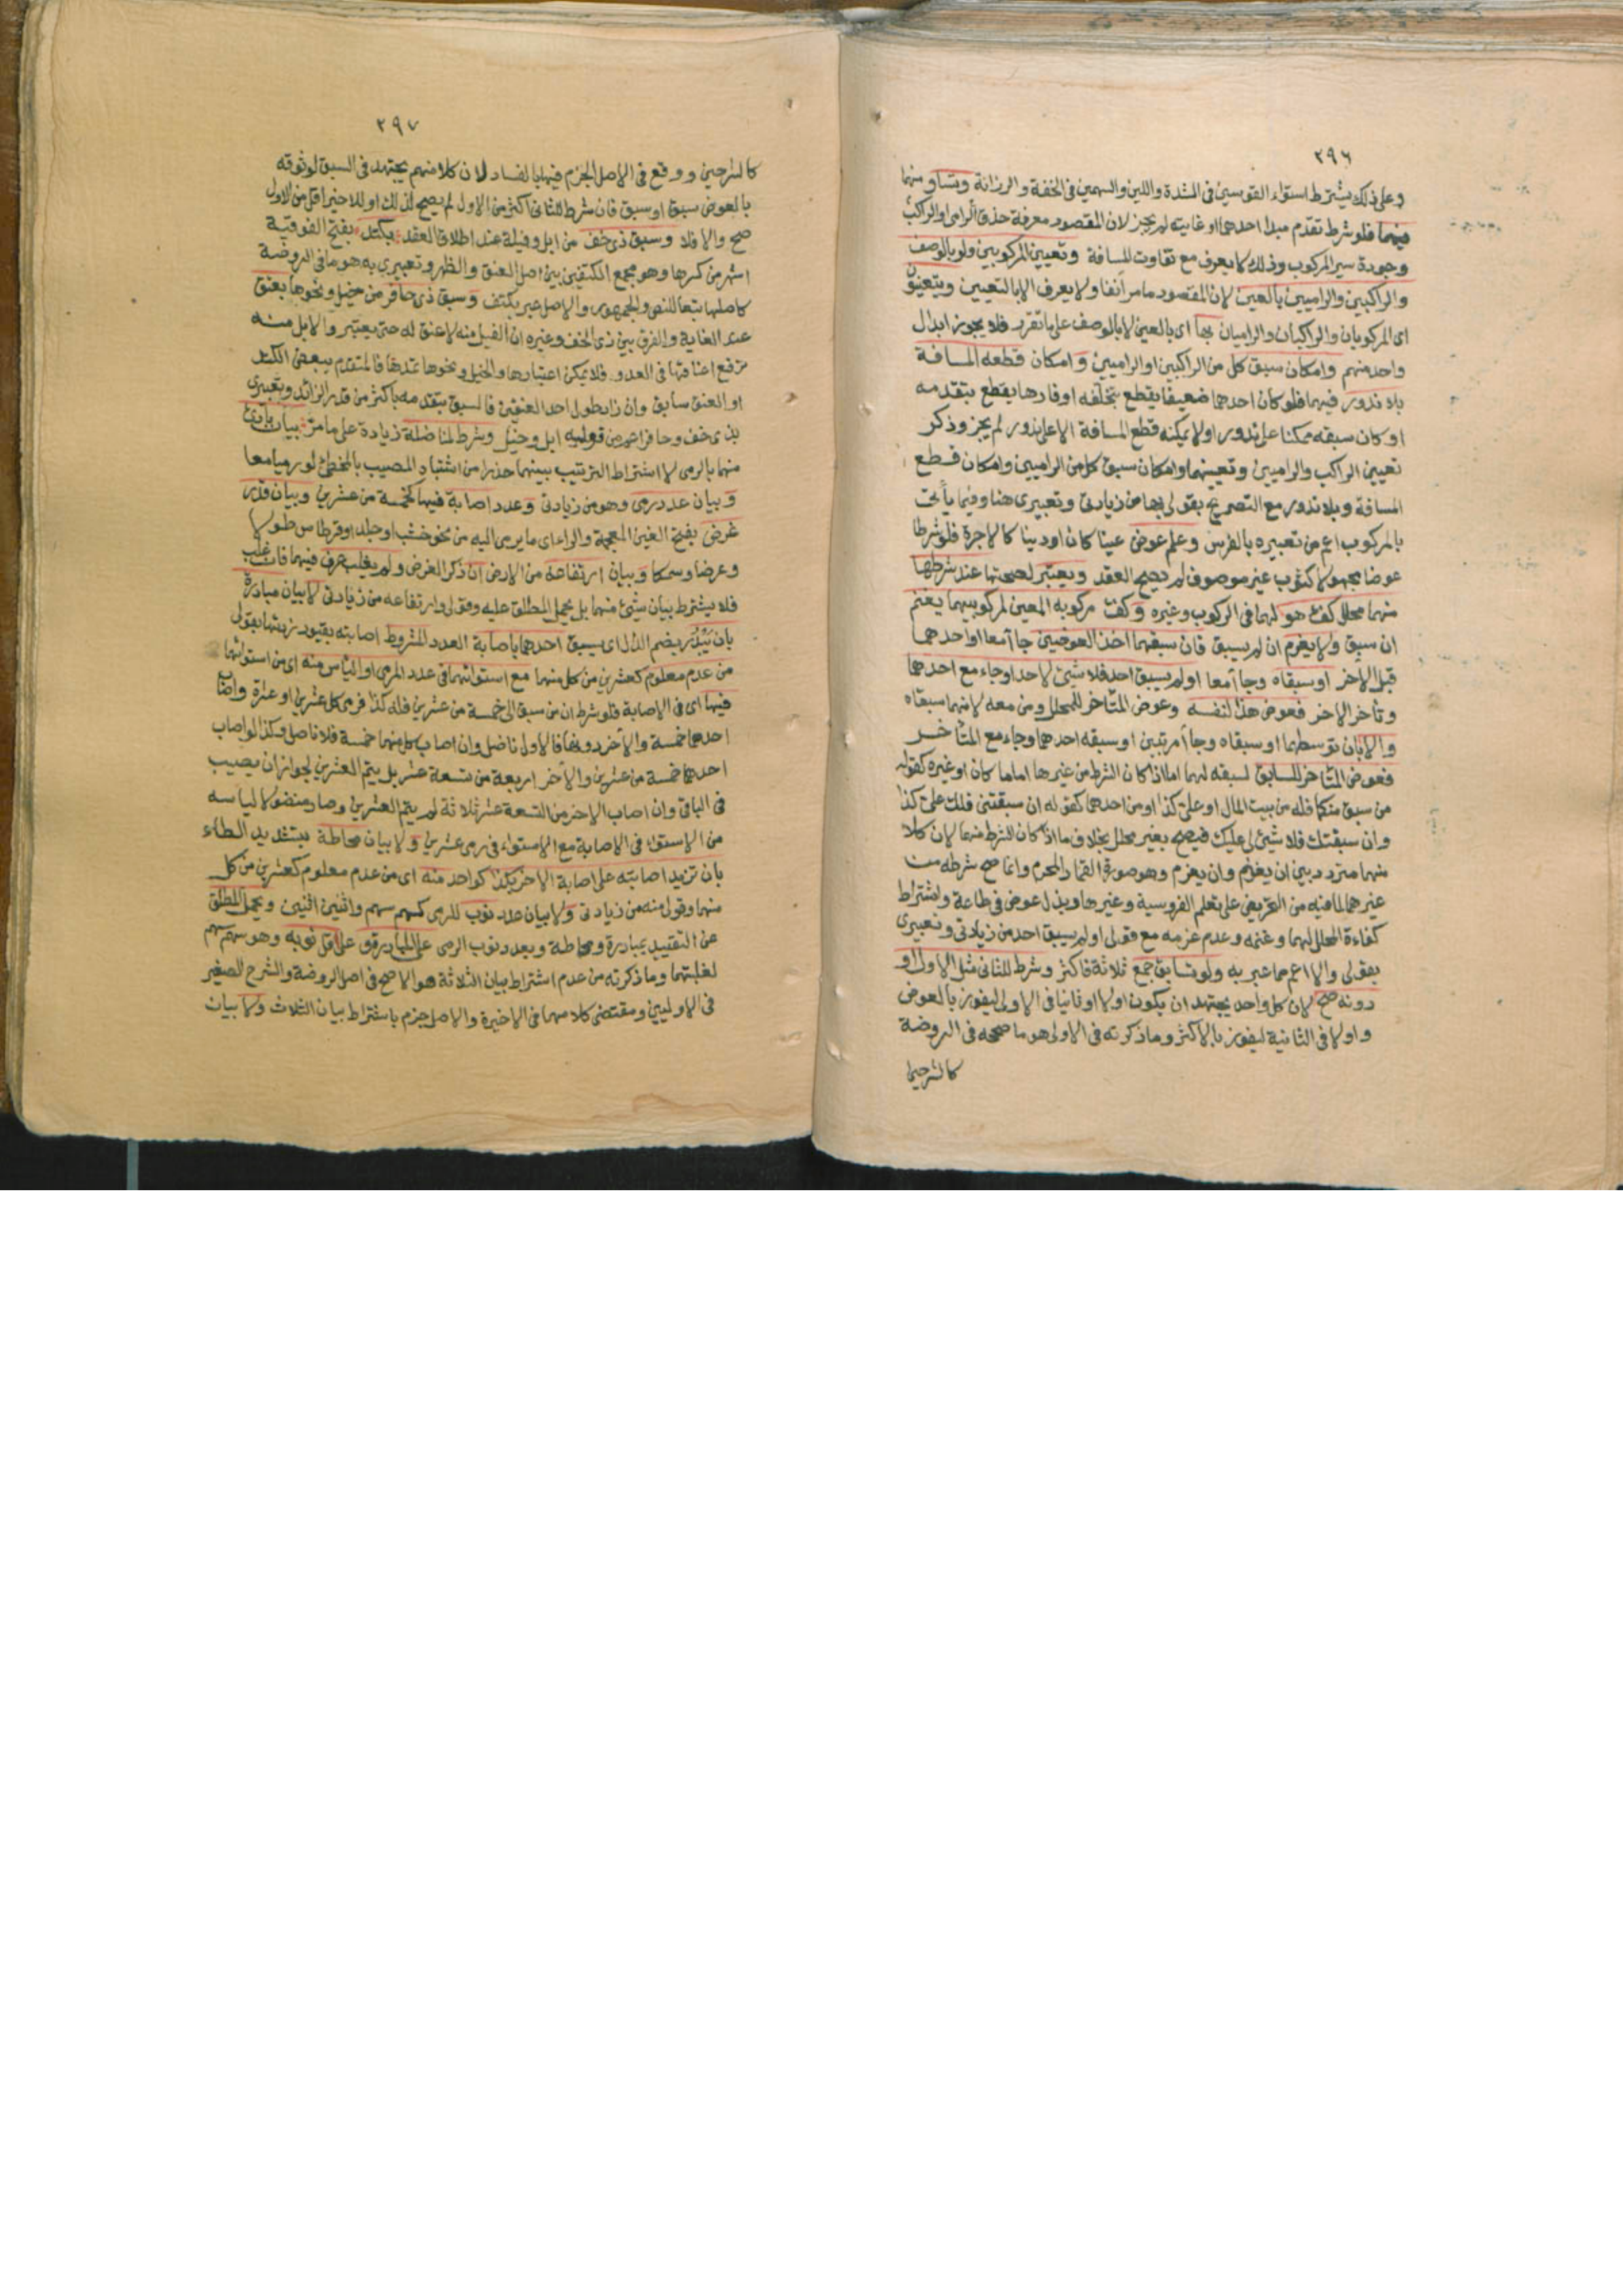 ٢٩٦
وعلى ذلك يشترط استواء القوسين في الشدة واللين والسهمين في الخفة والرزانة وتساو منهما
فيهما فلو شرط تقدم مبدا احدهما او غايته لم يجز لان المقصود معرفة حذق الرامى او الراكب
وجودة سير المركوب وذلك لا يعرف مع تفاوت المسافة وتعيين المركوبين ولو بالوصف
والراكبين والراميين بالعين لان المقصود ما مر انفا ولا يعرف الا بالتعيين ويتعينون
اى المركوبان والراكبان والراميان بها اى بالعين لا بالوصف على ما تقرر فلا يجوز ابدال
واحد منهم وامكان سبق كل من الراكبين او الراميين وامكان قطعه المسافة
بلا ندور فيهما فلو كان احدهما ضعيفا يقطع بتخلفه او فارها يقطع بتقدمه
او كان سبقه ممكنا على ندور او لا يمكنه قطع المسافة الا على ندور لم يجز وذكر
تعيين الراكب والراميين وتعينهما وامكان سبق كل من الراميين وامكان قطع
المسافة وبلا ندور مع التصريح بقولى بها من زيادتى وتعبيرى هنا وفيما يأتى
بالمركوب اعم من تعبيره بالفرس وعلم عوض عينا كان او دينا كالاجرة فلو شرطا
عوضا مجهولا كثوب غير موصوف لم يصح العقد ويعتبر لصحتها عند شرطها
منهما محلل كفؤ هو لهما في الركوب وغيره وكفؤ مركوبه المعين لمركوبيهما يغنم
ان سبق ولا يغرم ان لم يسبق فان سبقهما اخذ العوضين جاآ معا او احدهما
قبل الاخر او سبقاه وجاآ معا او لم يسبق احد فلا شيئ لاحد او جاء مع احدهما
وتأخر الاخر فعوض هذا لنفسه وعوض المتأخر للمحلل ومن معه لانهما سبقاه
والا بان توسطهما او سبقاه وجاآ مرتبين او سبقه احدهما وجاء مع المتأخر
فعوض المتأخر للسابق لسبقه لهما اما اذا كان الشرط من غيرها اماما كان او غيره كقوله
من سبق منكما فله من بيت المال او علي كذا او من احدهما كقوله ان سبقتنى فلك علي كذا
وان سبقتك فلا شيئ لى عليك فيصح بغير محلل بخلاف ما اذا كان الشرط منهما لان كلا
منهما متردد بين ان يغنم وان يغرم وهو صورة القمار المحرم وانما صح شرطه من
غيرهما لما فيه من التحريض على تعلم الفروسية وغيرها وبذل عوض في طاعة واشتراط
كفاءة المحلل لهما وغنمه وعدم غرمه مع قولى او لم يسبق احد من زيادتى وتعبيرى
بقولى والا اعم مما عبر به ولو تسابق جمع ثلاثة فاكثر وشرط للثانى مثل الاول او
دونه صح لان كل واحد يجتهد ان يكون اولا او ثانيا في الاولى ليفوز بالعوض
واولا في الثانية ليفوز بالاكثر وما ذكرته في الاولى هو ما صححه في الروضة
كالشرحين
٢٩٧
كالشرحين ووقع في الاصل الجزم فيها بالفساد لان كلا منهم يجتهد في السبق لوثوقه
بالعوض سبق او سبق فان شرط للثانى اكثر من الاول لم يصح لذلك او للاخير اقل من الاول
صح والا فلا وسبق ذى خف من ابل وفيلة عند اطلاق العقد بكتد بفتح الفوقية
اشهر من كسرها وهو مجمع الكتفين بين اصل العنق والظهر وتعبيرى به هو ما في الروضة
كاصلها تبعا للنص والجمهور والاصل عبر بكتف وسبق ذى حافر من خيل ونحوها بعنق
عند الغاية والفرق بين ذى الخف وغيره ان الفيل منه لا عنق له حتى يعتبر والابل منه
ترفع اعناقها في العدو فلا يمكن اعتبارها والخيل ونحوها تمدها فالمتقدم ببعض الكتد
او العنق سابق وان زاد طول احد العنقين فالسبق بتقدمه باكثر من قدر الزائد وتعبيرى
بذى خف وحافر اعم من قوليه ابل وخيل وشرط لمناضلة زيادة على ما مر بيان بادئ
منهما بالرمى لاشتراط الترتيب بينهما حذرا من اشتباه المصيب بالمخطئ لو رميا معا
وبيان عدد رمى وهو من زيادتى وعدد اصابة فيها كخمسة من عشرين وبيان قدر
غرض بفتح الغين المعجمة والراء اى ما يرمى اليه من نحو خشب او جلد او قرطاس طولا
وعرضا وسمكا وبيان ارتفاعه من الارض ان ذكر الغرض ولم يغلب عرف فيهما فان غلب
فلا يشترط بيان شيئ منهما بل يحمل المطلق عليه وقولى وارتفاعه من زيادتى لا بيان مبادرة
بان يَبْدُر بضم الدال اى يسبق احدهما باصابة العدد المشروط اصابته بقيود زدتها بقولى
من عدم معلوم كعشرين من كل منهما مع استوائهما في عدد المرمى او الياس منه اى من استوائهما
فيها اى في الاصابة فلو شرط ان من سبق الى خمسة من عشرين فله كذا فرمى كل عشرين او عشرة واصاب
احدهما خمسة والاخر دونها فالاول ناضل وان اصاب كل منهما خمسة فلا ناضل وكذا لو اصاب
احدهما خمسة من عشرين والاخر اربعة من تسعة عشر بل يتم العشرين لجواز ان يصيب
في الباقى وان اصاب الاخر من التسعة عشر ثلاثة لم يتم العشرين وصار منضولا لياسه
من الاستواء في الاصابة مع الاستواء في رمى عشرين ولا بيان محاطة بتشديد الطاء
بان تزيد اصابته على اصابة الاخر بكذا كواحد منه اى من عدم معلوم كعشرين من كل
منهما وقولى منه من زيادتى ولا بيان عدد نوب للرمى كسهم سهم واثنين اثنين ويحمل المطلق
عن التقييد بمبادرة ومحاطة وبعدد نوب الرمى على المبادرة و على اقل نوبه وهو سهم سهم
لغلبتهما وما ذكرته من عدم اشتراط بيان الثلاثة هو الاصح في اصل الروضة والشرح الصغير
في الاوليين ومقتضى كلامهما في الاخيرة والاصل جزم باشتراط بيان الثلاث ولا بيان